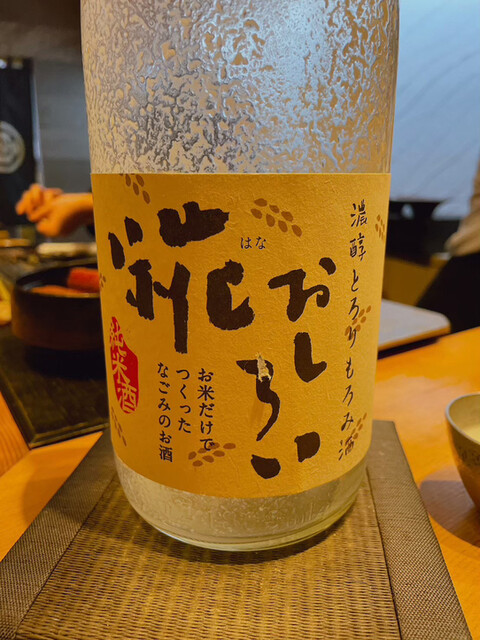 濃醇とろりもろみ酒
糀
はな
おしろい
お米だけで
つくった
なごみのお酒
純米酒